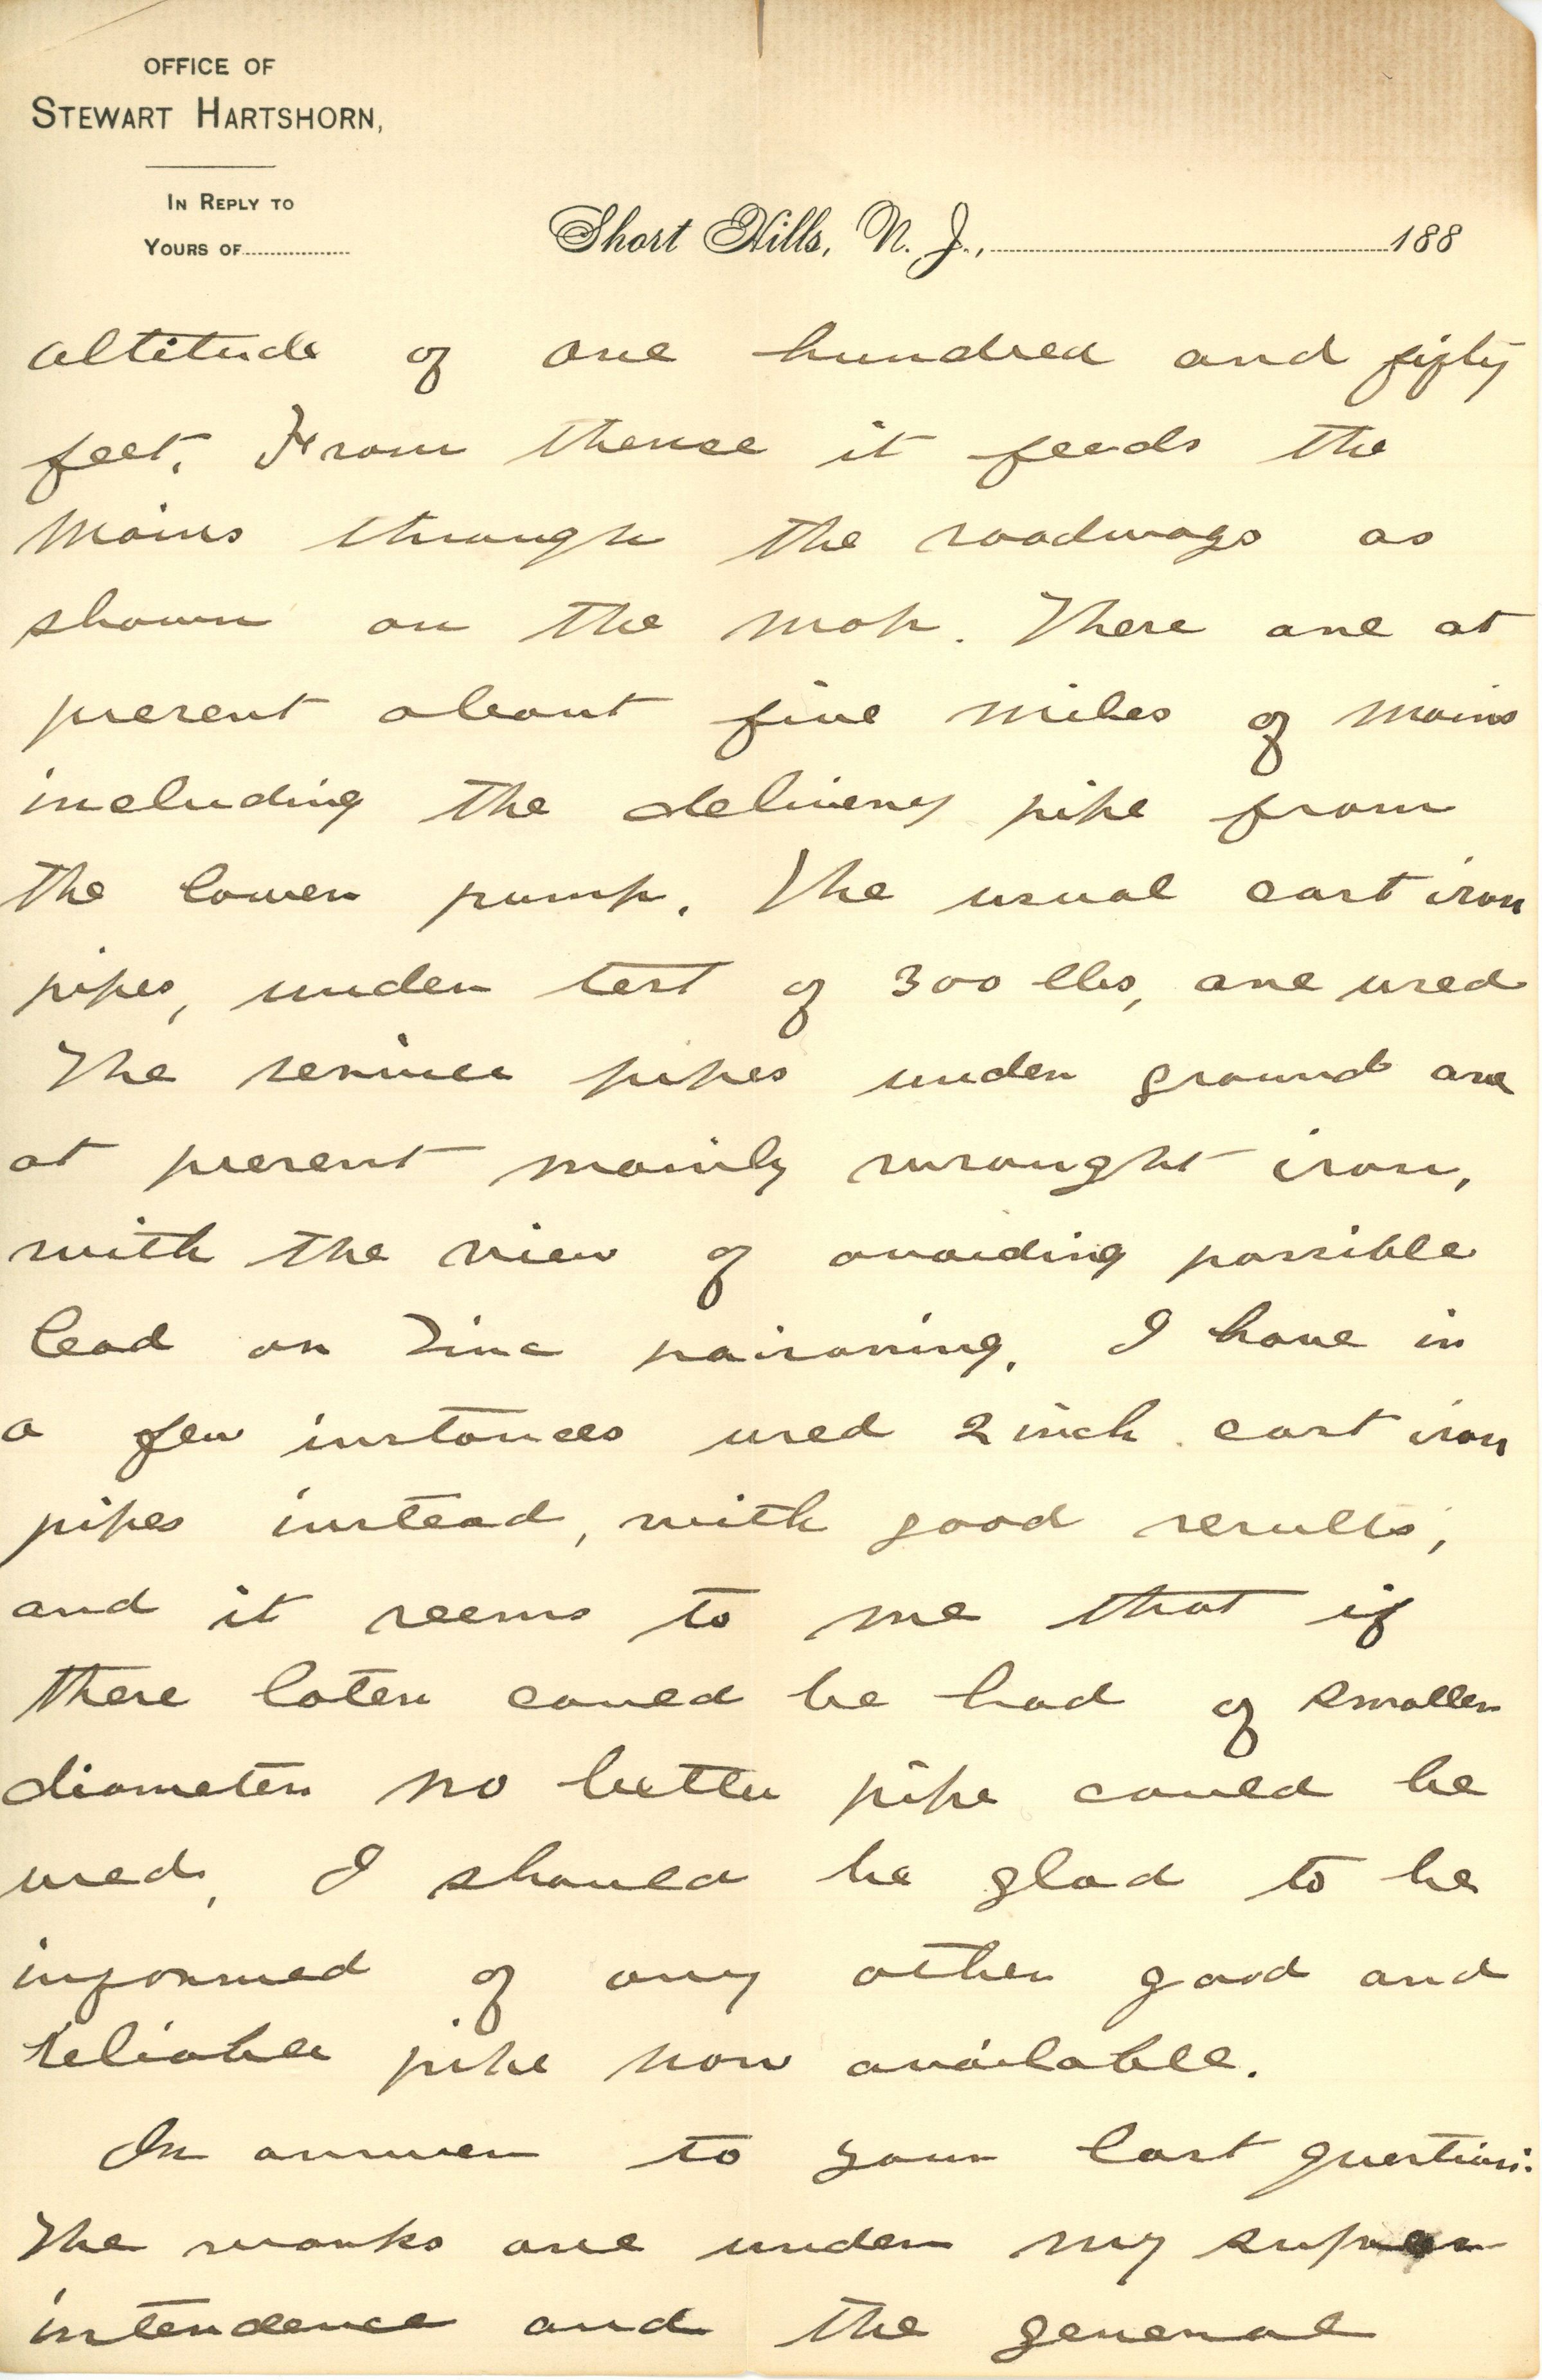 OFFICE OF
STEWART HARTSHORN,
IN REPLY TO
YOURS OF
Short Hills, N. J., 188
altitude of one hundred and fifty
feet. From thence it feeds the
mains through the roadways as
shown on the map. There are at
present about five miles of mains
including the delivery pipe from
the lower pump. The usual cast iron
pipes, under test of 300 lbs, are used
The service pipes under ground are
at present mainly wrought iron,
with the view of avoiding possible
lead or zinc poisoning. I have in
a few instances used 2 inch cast iron
pipes instead, with good results,
and it seems to me that if
these later could be had of smaller
diameter no better pipe could be
used, I should be glad to be
informed of any other good and
reliable pipe now available.
In answer to your last question:
The works are under my super
intendence and the general